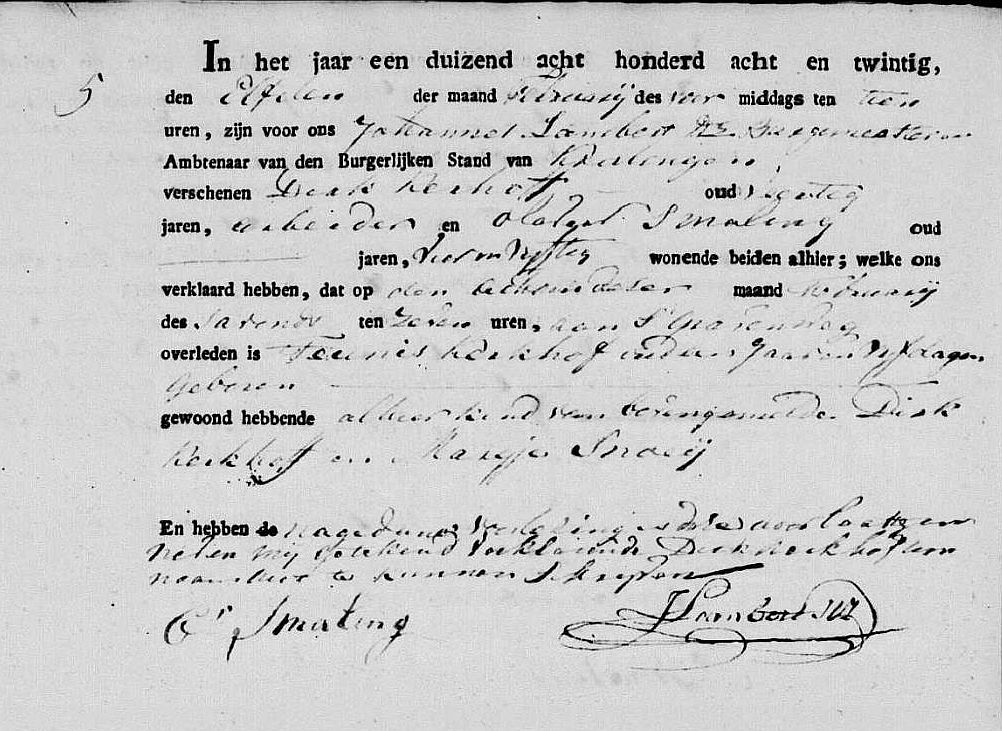 5
In het jaar een duizend acht honderd acht en twintig,
den Elfden der maand Februarij des voor middags ten tien
uren, zijn voor ons Johannes Lambert Burgemeester en
Ambtenaar van den Burgerlijken Stand van Kralingen
verschenen Dirk Kerkhoff oud veertig
jaren, arbeider en Smaling oud
jaren, vier en vyftig wonende beiden alhier; welke ons
verklaard hebben, dat op den achsten deser maand Februarij
des savonds ten zeven uren, aan S Gravenweg
overleden is Teunis Kerkhof oud een Jaar en vyf dagen
Geboren
gewoond hebbende alhier kind van bovengemelde Dirk
Kerkhoff en Marijje Snoeij
En hebben de na gedane voorlezing deze
neven my getekend verklarende Dirk Kerkhoff
te kunnen schryven
Cs Smaling JLambert